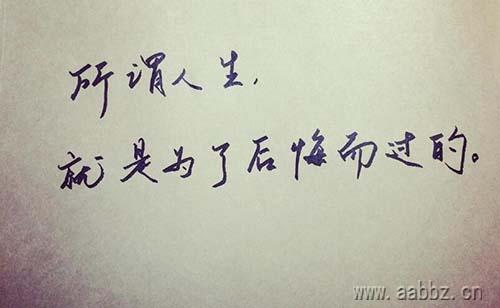 所谓人生,
就是为了后悔而过的。
www.aabbz.cn